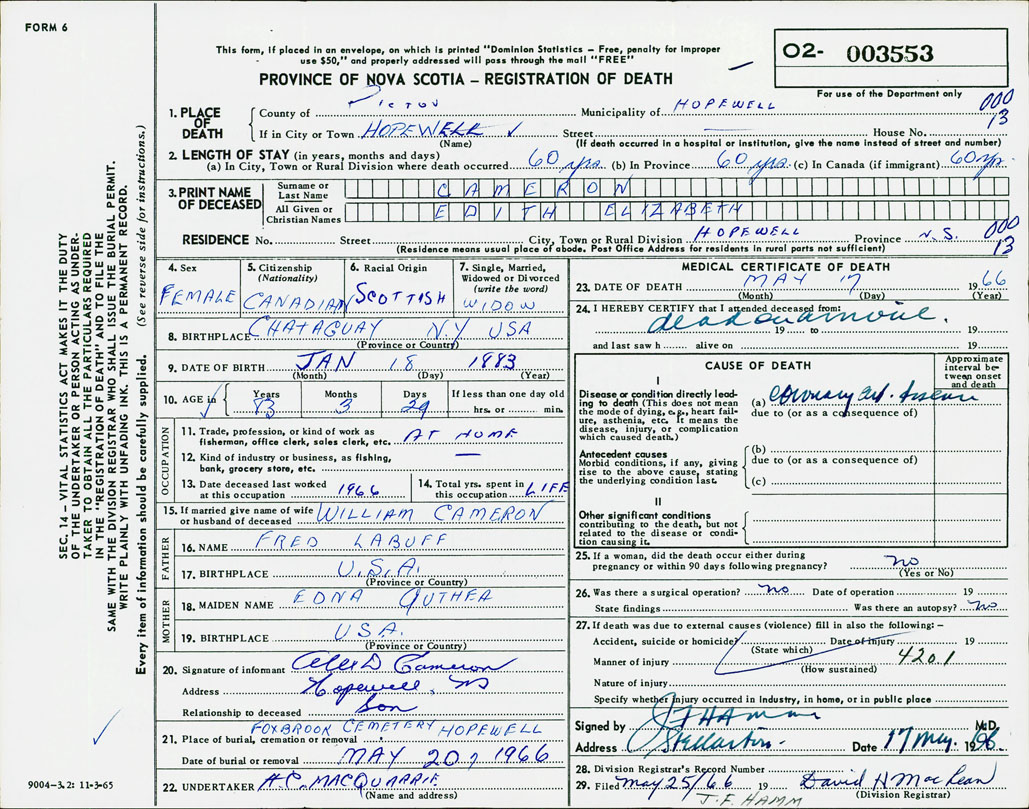 FORM 6
This form, if placed in an envelope, on which is printed "Dominion Statistics – Free, penalty for improper
use $50," and properly addressed will pass through the mail "FREE"
PROVINCE OF NOVA SCOTIA – REGISTRATION OF DEATH
O2- 003553
For use of the Department only
1. PLACE OF DEATH County of PICTOU Municipality of HOPEWELL 000
If in City or Town HOPEWELL ✓ Street — House No. 13
(Name) (If death occurred in a hospital or institution, give the name instead of street and number)
2. LENGTH OF STAY (in years, months and days)
(a) In City, Town or Rural Division where death occurred 60 yrs. (b) In Province 60 yrs. (c) In Canada (if immigrant) 60 yr.
3. PRINT NAME OF DECEASED Surname or Last Name CAMERON
All Given or Christian Names EDITH ELIZABETH
RESIDENCE No. Street City, Town or Rural Division HOPEWELL Province N.S. 000
(Residence means usual place of abode. Post Office Address for residents in rural parts not sufficient) 13
4. Sex FEMALE
5. Citizenship (Nationality) CANADIAN
6. Racial Origin SCOTTISH
7. Single, Married, Widowed or Divorced (write the word) WIDOW
8. BIRTHPLACE CHATAGUAY N.Y USA
(Province or Country)
9. DATE OF BIRTH JAN 18 1883
(Month) (Day) (Year)
10. AGE in ✓ Years 83 Months 3 Days 29 If less than one day old hrs. or min.
OCCUPATION
11. Trade, profession, or kind of work as
fisherman, office clerk, sales clerk, etc. AT HOME
12. Kind of industry or business, as fishing,
bank, grocery store, etc. —
13. Date deceased last worked at this occupation 1966
14. Total yrs. spent in this occupation LIFE
15. If married give name of wife or husband of deceased WILLIAM CAMERON
FATHER
16. NAME FRED LABUFF
17. BIRTHPLACE U.S.A.
(Province or Country)
MOTHER
18. MAIDEN NAME EDNA QUTHEA
19. BIRTHPLACE USA.
(Province or Country)
20. Signature of informant Alex D Cameron
Address Hopewell, NS
Relationship to deceased Son
FOXBROOK CEMETERY HOPEWELL
21. Place of burial, cremation or removal
Date of burial or removal MAY 20, 1966
22. UNDERTAKER A.C. MACQUARRIE
(Name and address)
MEDICAL CERTIFICATE OF DEATH
23. DATE OF DEATH MAY 17 1966
(Month) (Day) (Year)
24. I HEREBY CERTIFY that I attended deceased from:
dead on arrival.
19 to 19
and last saw h alive on 19
CAUSE OF DEATH
Approximate interval between onset and death
I
Disease or condition directly leading to death (This does not mean the mode of dying, e.g., heart failure, asthenia, etc. It means the disease, injury, or complication which caused death.)
(a) coronary art. disease
due to (or as a consequence of)
Antecedent causes
Morbid conditions, if any, giving rise to the above cause, stating the underlying condition last.
(b)
due to (or as a consequence of)
(c)
II
Other significant conditions
contributing to the death, but not related to the disease or condition causing it.
25. If a woman, did the death occur either during
pregnancy or within 90 days following pregnancy? no
(Yes or No)
26. Was there a surgical operation? no Date of operation 19
State findings Was there an autopsy? no
27. If death was due to external causes (violence) fill in also the following: –
Accident, suicide or homicide? Date of injury 19
(State which) 420.1
Manner of injury
(How sustained)
Nature of injury
Specify whether injury occurred in industry, in home, or in public place
Signed by J F HAMM M.D.
Address Stellarton. Date 17 May. 1966
28. Division Registrar's Record Number
29. Filed May 25/66 19 David H MacLean
J.F. HAMM (Division Registrar)
SEC. 14 – VITAL STATISTICS ACT MAKES IT THE DUTY
OF THE UNDERTAKER OR PERSON ACTING AS UNDER-
TAKER TO OBTAIN ALL THE PARTICULARS REQUIRED
IN THE "REGISTRATION OF DEATH" AND TO FILE THE
SAME WITH THE DIVISION REGISTRAR WHO SHALL ISSUE THE BURIAL PERMIT.
WRITE PLAINLY WITH UNFADING INK. THIS IS A PERMANENT RECORD.
Every item of information should be carefully supplied. (See reverse side for instructions.)
9004-3.2: 11-3-65